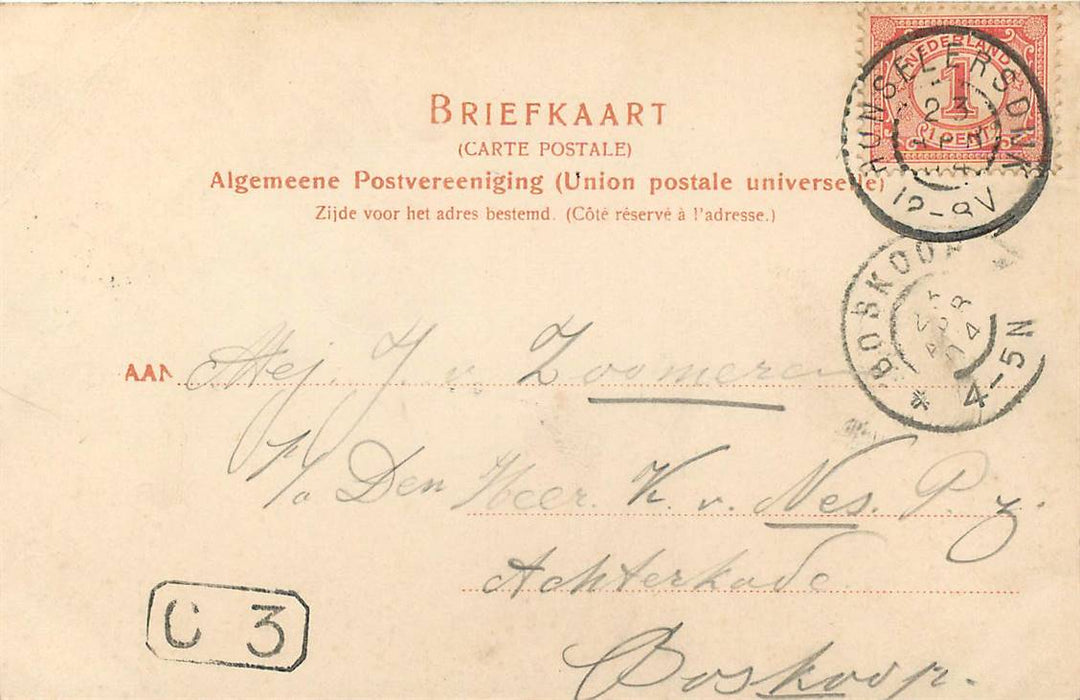 BRIEFKAART
(CARTE POSTALE)
Algemeene Postvereeniging (Union postale universelle)
Zijde voor het adres bestemd. (Côté réservé à l'adresse.)
NEDERLAND
1
1 CENT
HONSELERSDIJK
23
12-8V
BOSKOOP
4-5N
AAN Mej. J. v. Zoomeren
p/a Den Heer K. v. Nes. P. z.
Achterkade
Boskoop.
C 3